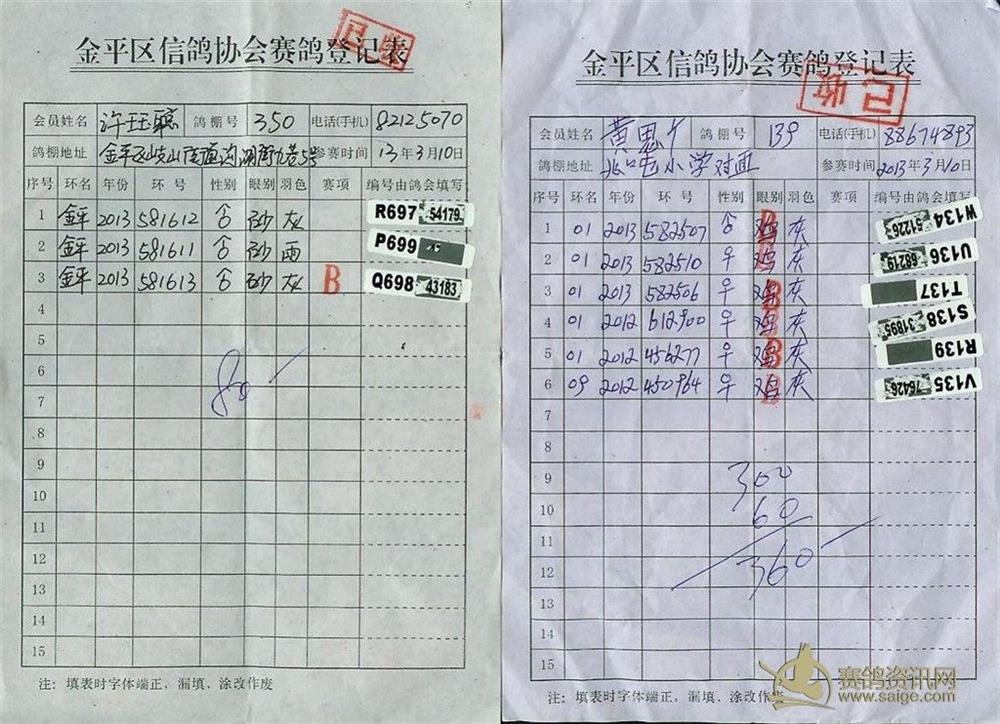 金平区信鸽协会赛鸽登记表
已收
会员姓名 鸽棚号 350 电话(手机) 82125070
鸽棚地址 参赛时间 13年3月10日
序号 环名 年份 环号 性别 眼别 羽色 赛项 编号由鸽会填写
1 金平 2013 581612 砂 灰 R697 54179
2 金平 2013 581611 砂 雨 P699
3 金平 2013 581613 砂 灰 B Q698 43183
4
5
6
7
8
9
10
11
12
13
14
15
80
注：填表时字体端正，漏填、涂改作废
金平区信鸽协会赛鸽登记表
已收
会员姓名 鸽棚号 139 电话(手机) 88674893
鸽棚地址 小学对面 参赛时间 2013年3月10日
序号 环名 年份 环号 性别 眼别 羽色 赛项 编号由鸽会填写
1 01 2013 582507 鸡 B 灰 W134 51226
2 01 2013 582510 ♀ 鸡 灰 U136 68219
3 01 2013 582506 ♀ 鸡 B 灰 T137
4 01 2012 612900 ♀ 鸡 灰 S138 31895
5 01 2012 456277 ♀ 鸡 B 灰 R139
6 09 2012 450964 ♀ 鸡 灰 V135 76426
7
8
9
10
11
12
13
14
15
300
60
360
注：填表时字体端正，漏填、涂改作废
赛鸽资讯网
www.saige.com